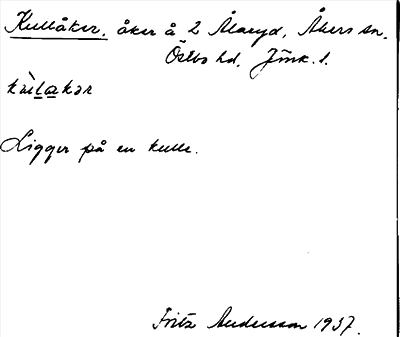 Kullåker, åker å 2 Ålaryd, Åkers sn.
Östbo hd. Jönk. l.
Ligger på en kulle.
Fritz Andersson 1937.